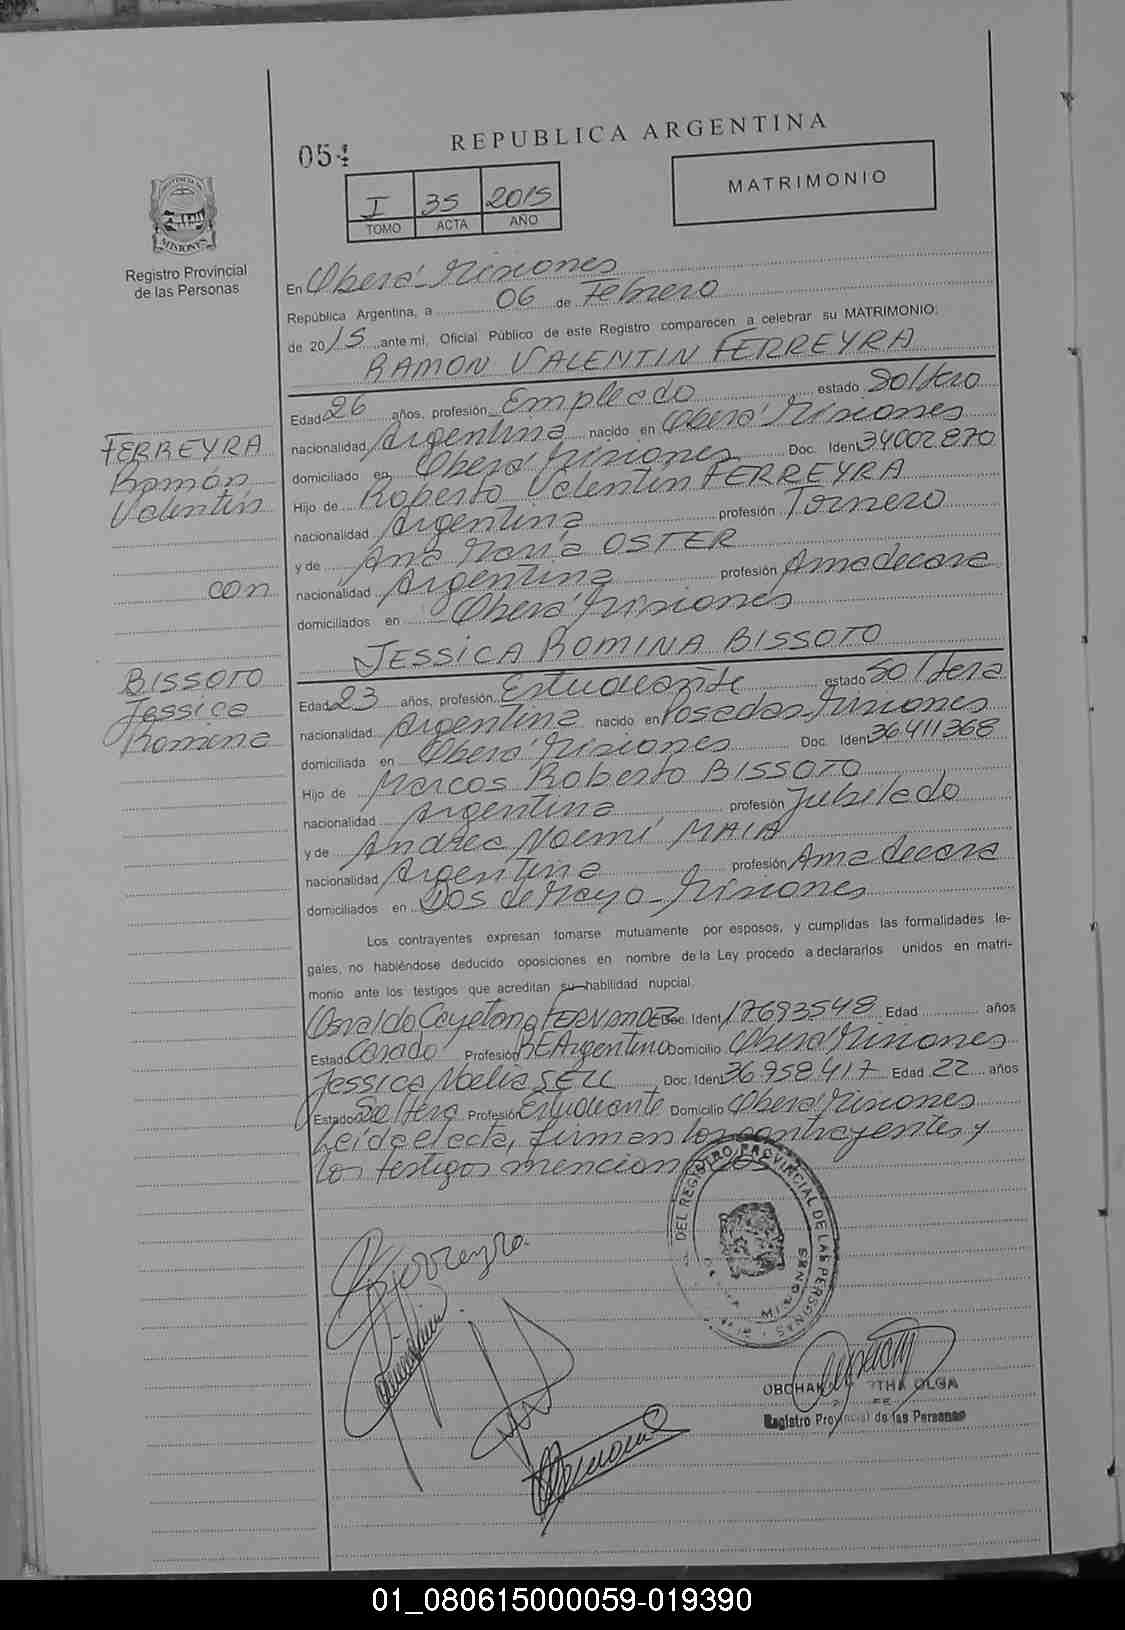 REPUBLICA ARGENTINA
054
I 35 2015
TOMO ACTA AÑO
MATRIMONIO
PROVINCIA DE
MISIONES
Registro Provincial
de las Personas
En Oberá - Misiones
República Argentina, a 06 de Febrero
de 2015 ante mí, Oficial Público de este Registro comparecen a celebrar su MATRIMONIO:
RAMON VALENTIN FERREYRA
Edad 26 años, profesión Empleado estado Soltero
nacionalidad Argentina nacido en Oberá Misiones
domiciliado en Oberá Misiones Doc. Iden 34002870
Hijo de Roberto Valentin FERREYRA
nacionalidad Argentina profesión Tornero
y de Ana María OSTER
nacionalidad Argentina profesión Ama de casa
domiciliados en Oberá Misiones
FERREYRA
Ramón
Valentín
con
BISSOTO
Jessica
Romina
JESSICA ROMINA BISSOTO
Edad 23 años, profesión Estudiante estado Soltera
nacionalidad Argentina nacido en Posadas - Misiones
domiciliada en Oberá Misiones Doc. Iden 36.411368
Hijo de Marcos Roberto BISSOTO
nacionalidad Argentina profesión Jubilado
y de Andrea Noemí MAIA
nacionalidad Argentina profesión Ama de casa
domiciliados en Dos de Mayo - Misiones
Los contrayentes expresan tomarse mutuamente por esposos, y cumplidas las formalidades le-
gales, no habiéndose deducido oposiciones en nombre de la Ley procedo a declararlos unidos en matri-
monio ante los testigos que acreditan su habilidad nupcial.
Osvaldo Cayetano FERNANDEZ Doc. Ident 17693548 Edad años
Estado Casado Profesión Argentino Domicilio Oberá Misiones
Jessica Noelia Doc. Ident 36958417 Edad 22 años
Estado Soltera Profesión Estudiante Domicilio Oberá Misiones
Leída el acta, firman los contrayentes y
los testigos mencionados
Ferreyra
DEL REGISTRO PROVINCIAL DE LAS PERSONAS
MISIONES
OLGA
Registro Provincial de las Personas
01_080615000059-019390